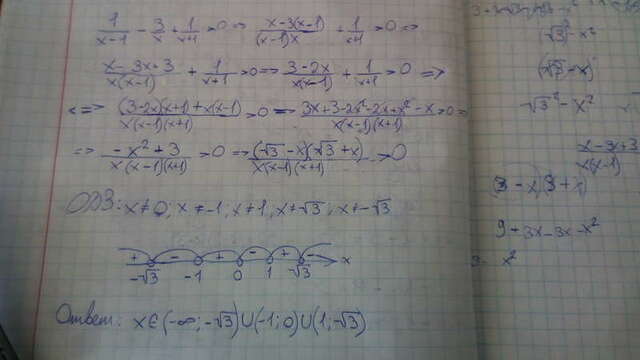 1/(x-1) - 3/x + 1/(x+1) > 0 => (x-3(x-1))/((x-1)x) + 1/(x+1) > 0 =>
(x-3x+3)/(x(x-1)) + 1/(x+1) > 0 => (3-2x)/(x(x-1)) + 1/(x+1) > 0 =>
<=> ((3-2x)(x+1)+x(x-1))/(x(x-1)(x+1)) > 0 => (3x+3-2x²-2x+x²-x)/(x(x-1)(x+1)) > 0 =
=> (-x²+3)/(x(x-1)(x+1)) > 0 => ((√3-x)(√3+x))/(x(x-1)(x+1)) > 0
ОДЗ: x≠0; x≠-1; x≠1, x≠√3, x≠-√3
+ - + - + -
-√3 -1 0 1 √3 x
Ответ: x∈(-∞;-√3)∪(-1;0)∪(1;√3)
√3² - x²
(√3 - x)
√3² - x²
(x-3x+3)/(x(x-1))
(3-x)(3+x)
9+3x-3x-x²
x²